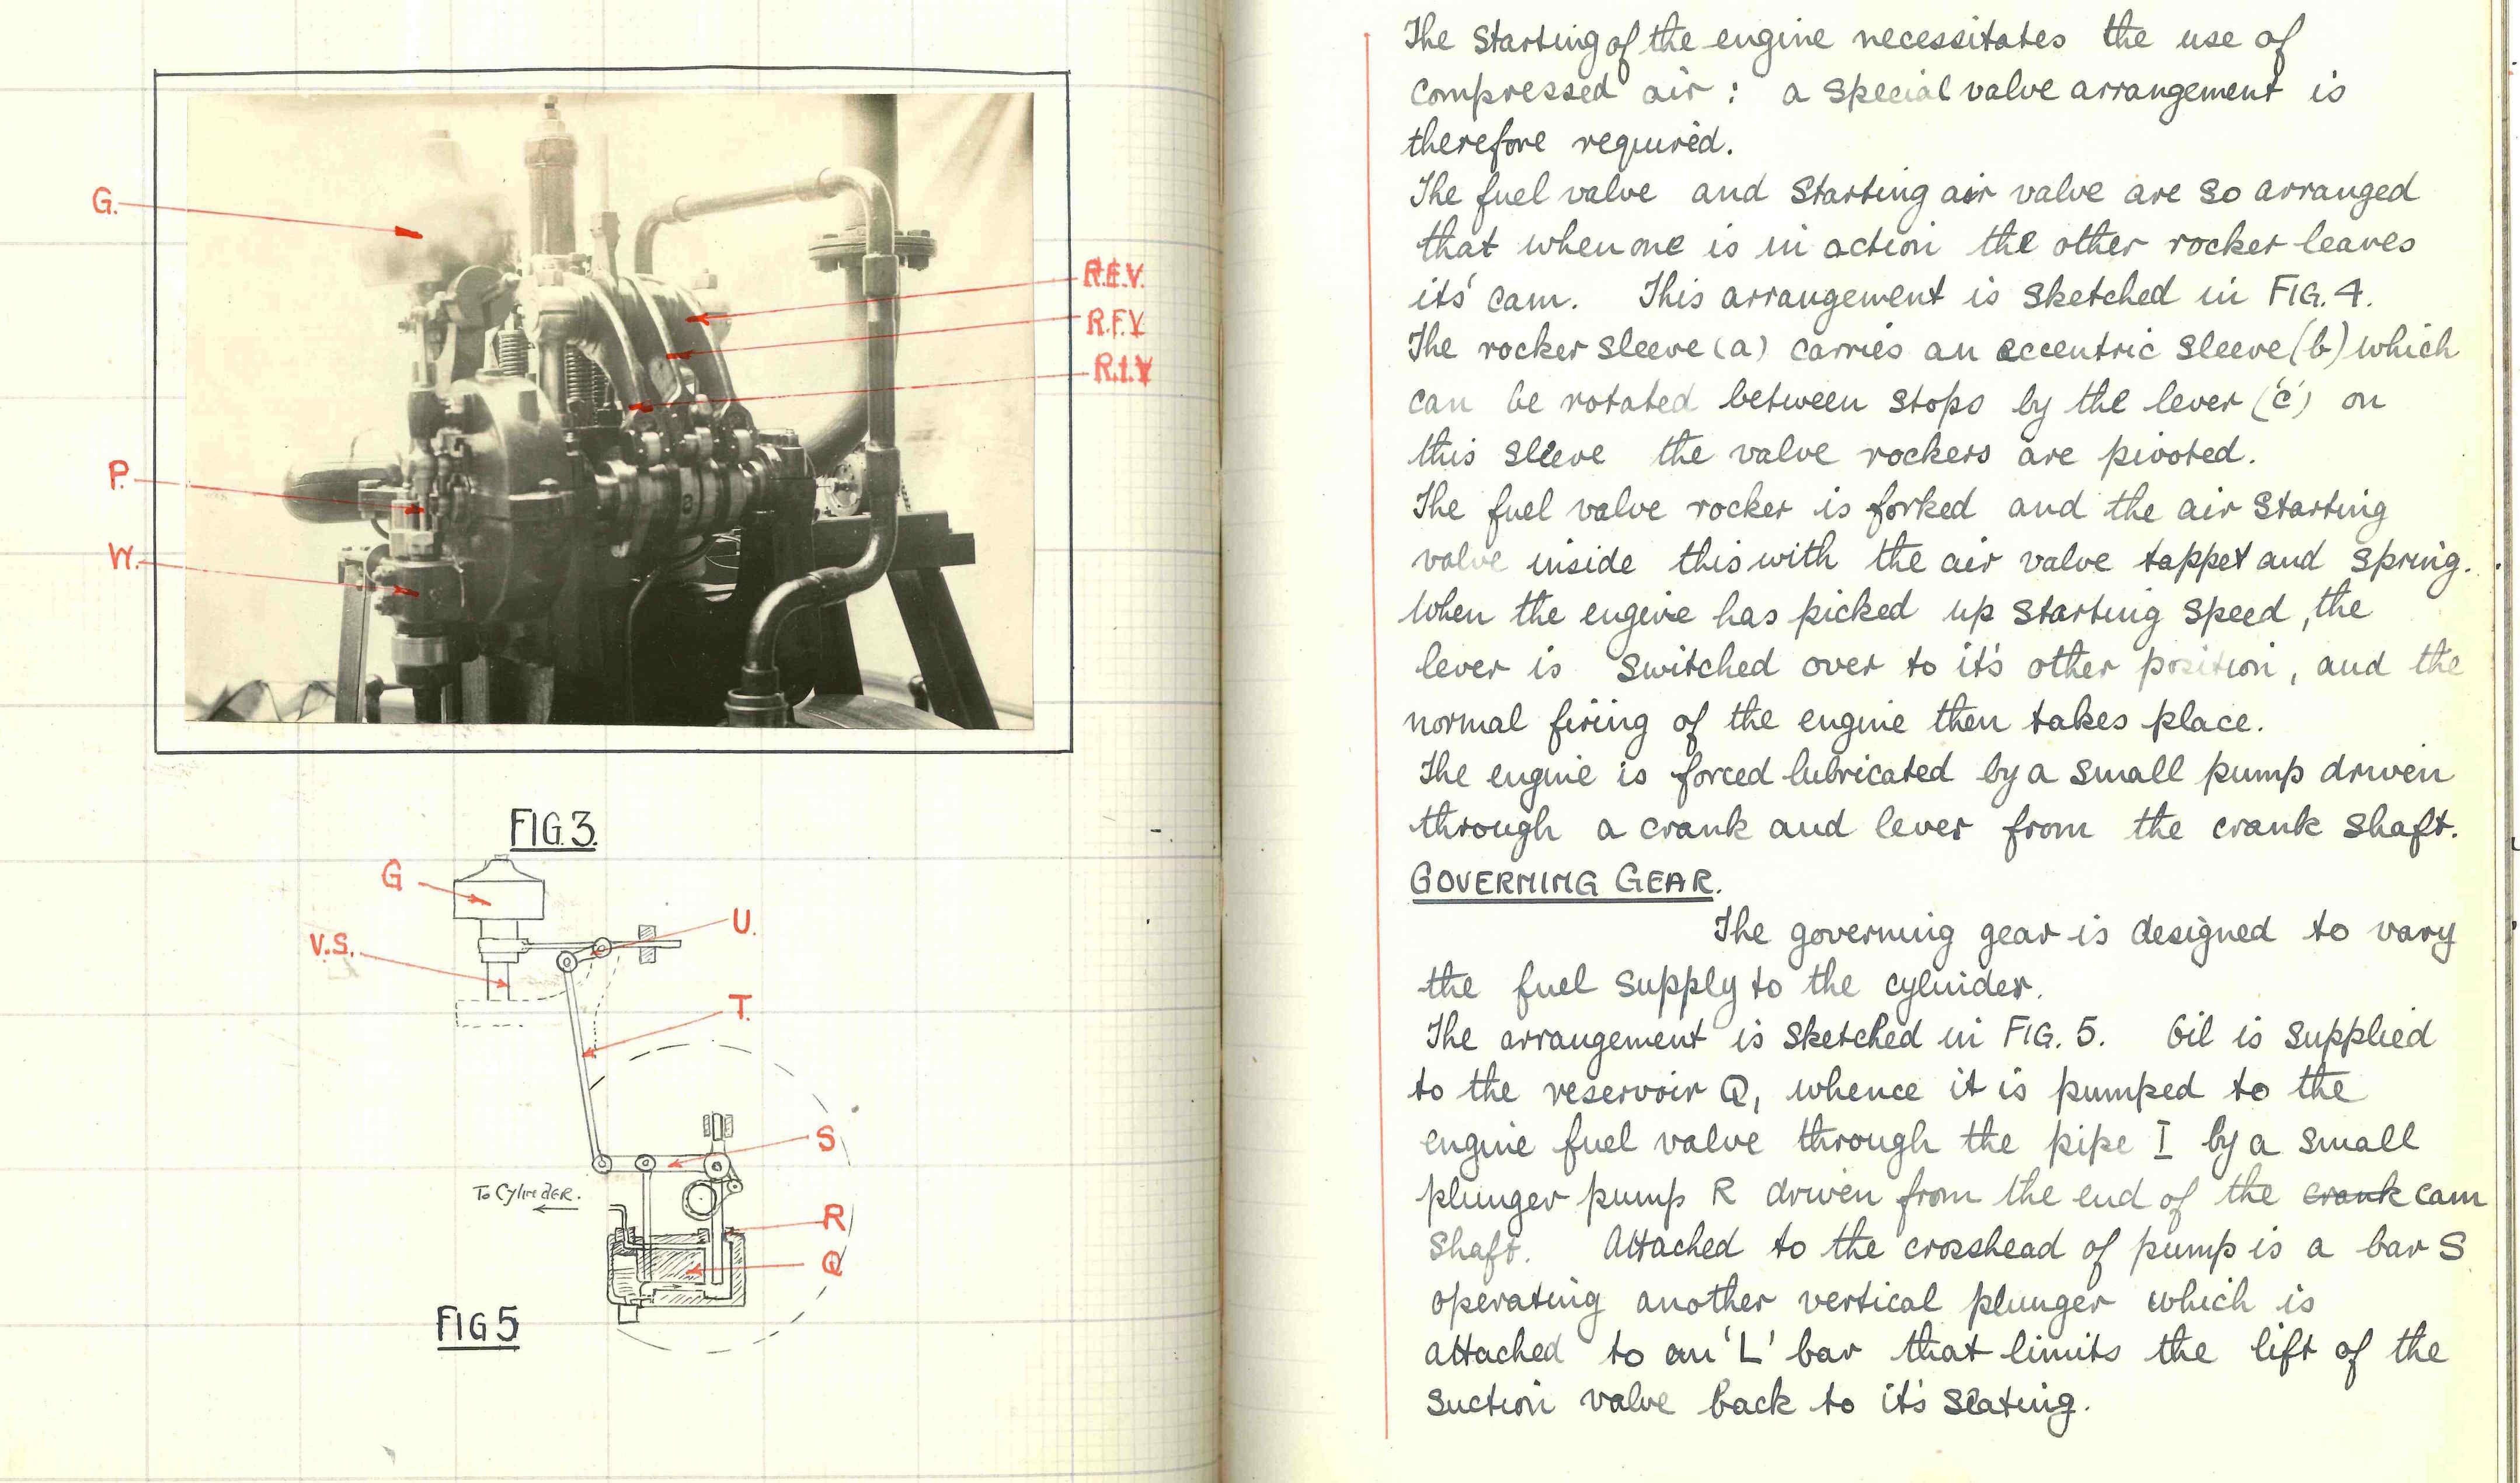 G.
R.E.V.
R.F.V
R.I.V
P.
W.
FIG.3.
G
U.
V.S.
T.
S
To Cylinder.
R
Q
FIG 5
The Starting of the engine necessitates the use of
compressed air : a special valve arrangement is
therefore required.
The fuel valve and Starting air valve are so arranged
that when one is in action the other rocker leaves
its' cam. This arrangement is sketched in FIG. 4.
The rocker sleeve (a) carries an eccentric sleeve (b) which
can be rotated between stops by the lever ('c') on
this sleeve the valve rockers are pivoted.
The fuel valve rocker is forked and the air starting
valve inside this with the air valve tappet and spring.
When the engine has picked up starting speed, the
lever is switched over to it's other position, and the
normal firing of the engine then takes place.
The engine is forced lubricated by a small pump driven
through a crank and lever from the crank shaft.
GOVERNING GEAR.
The governing gear is designed to vary
the fuel supply to the cylinder.
The arrangement is sketched in FIG. 5. Oil is supplied
to the reservoir Q, whence it is pumped to the
engine fuel valve through the pipe I by a small
plunger pump R driven from the end of the crank cam
shaft. Attached to the crosshead of pump is a bar S
operating another vertical plunger which is
attached to an 'L' bar that limits the lift of the
suction valve back to it's seating.